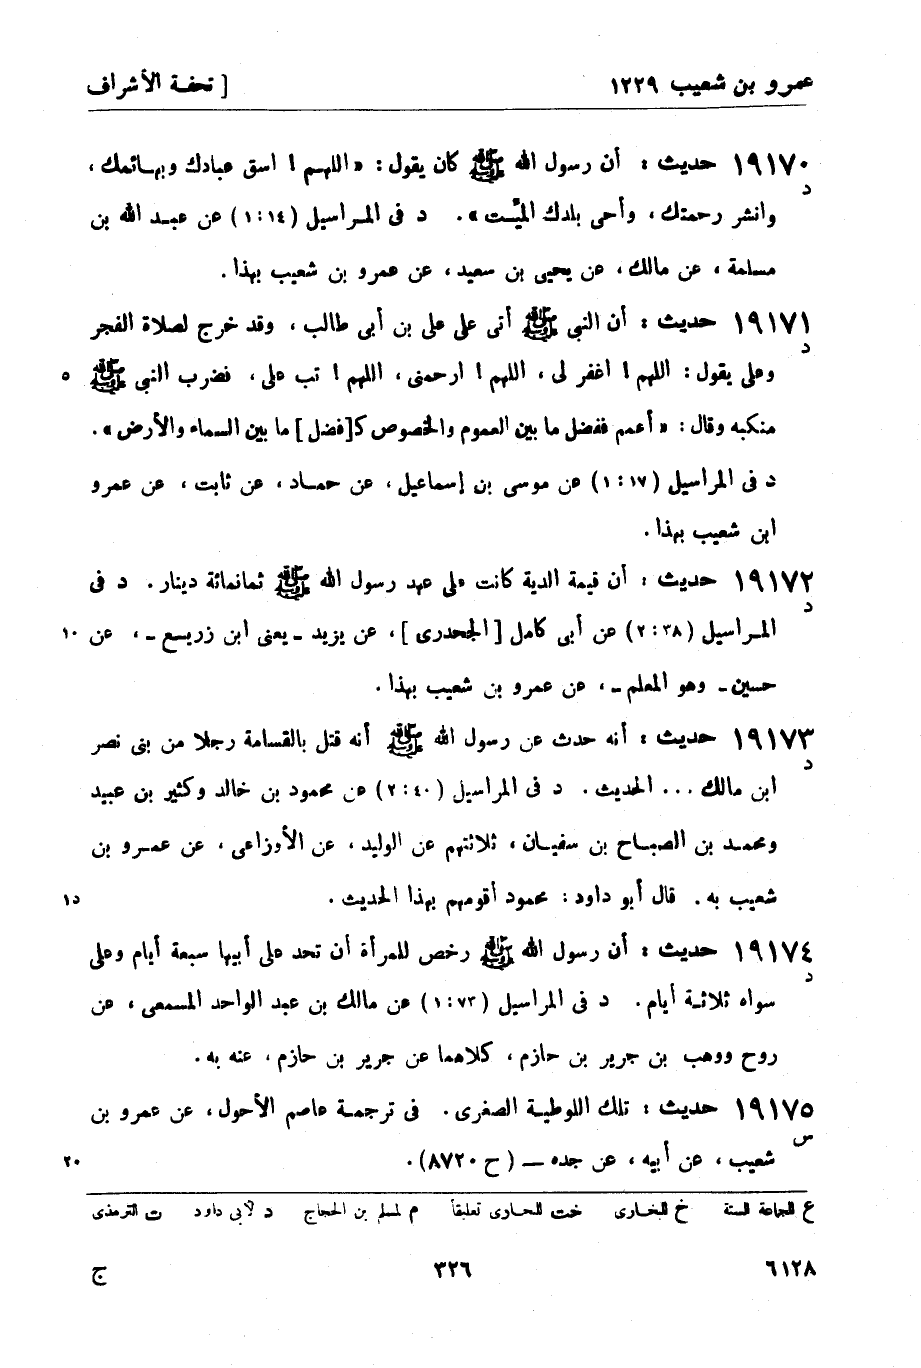 عمرو بن شعيب ١٢٢٩ [ تحفة الأشراف
١٩١٧٠ حديث : أن رسول الله ﷺ كان يقول : « اللهم ! اسق عبادك وبهائمك ،
د
وانشر رحمتك ، وأحى بلدك الميِّت » . د فى المراسيل (١:١٤) عن عبد الله بن
مسلمة ، عن مالك ، عن يحيى بن سعيد ، عن عمرو بن شعيب بهذا .
١٩١٧١ حديث : أن النبى ﷺ أتى على على بن أبى طالب ، وقد خرج لصلاة الفجر
د
وعلى يقول : اللهم ! اغفر لى ، اللهم ! ارحمنى ، اللهم ! تب على ، فضرب النبى ﷺ ٥
منكبه وقال : « أعمم ففضل ما بين العموم والخصوص كـ[فضل] ما بين السماء والأرض » .
د فى المراسيل (١:١٧) عن موسى بن إسماعيل ، عن حماد ، عن ثابت ، عن عمرو
ابن شعيب بهذا .
١٩١٧٢ حديث : أن قيمة الدية كانت على عهد رسول الله ﷺ ثمانمائة دينار . د فى
د
المراسيل (٢:٣٨) عن أبى كامل [الجحدرى] ، عن يزيد ـ يعنى ابن زريع ـ ، عن ١٠
حسين ـ وهو المعلم ـ ، عن عمرو بن شعيب بهذا .
١٩١٧٣ حديث : أنه حدث عن رسول الله ﷺ أنه قتل بالقسامة رجلا من بنى نصر
د
ابن مالك ... الحديث . د فى المراسيل (٢:٤٠) عن محمود بن خالد وكثير بن عبيد
ومحمد بن الصباح بن سفيان ، ثلاثتهم عن الوليد ، عن الأوزاعى ، عن عمرو بن
شعيب به . قال أبو داود : محمود أقومهم بهذا الحديث . د١
١٩١٧٤ حديث : أن رسول الله ﷺ رخص للمرأة أن تحد على أبيها سبعة أيام وعلى
د
سواه ثلاثة أيام . د فى المراسيل (١:٧٣) عن مالك بن عبد الواحد المسمعى ، عن
روح ووهب بن جرير بن حازم ، كلاهما عن جرير بن حازم ، عنه به .
١٩١٧٥ حديث : تلك اللوطية الصغرى . فى ترجمة عاصم الأحول ، عن عمرو بن
س
شعيب ، عن أبيه ، عن جده ـــ (ح ٨٧٢٠) . ٢٠
ع للجماعة الستة خ للبخارى خت للبخارى تعليقاً م لمسلم بن الحجاج د لأبى داود ت للترمذى
٦١٢٨ ٣٢٦ ج